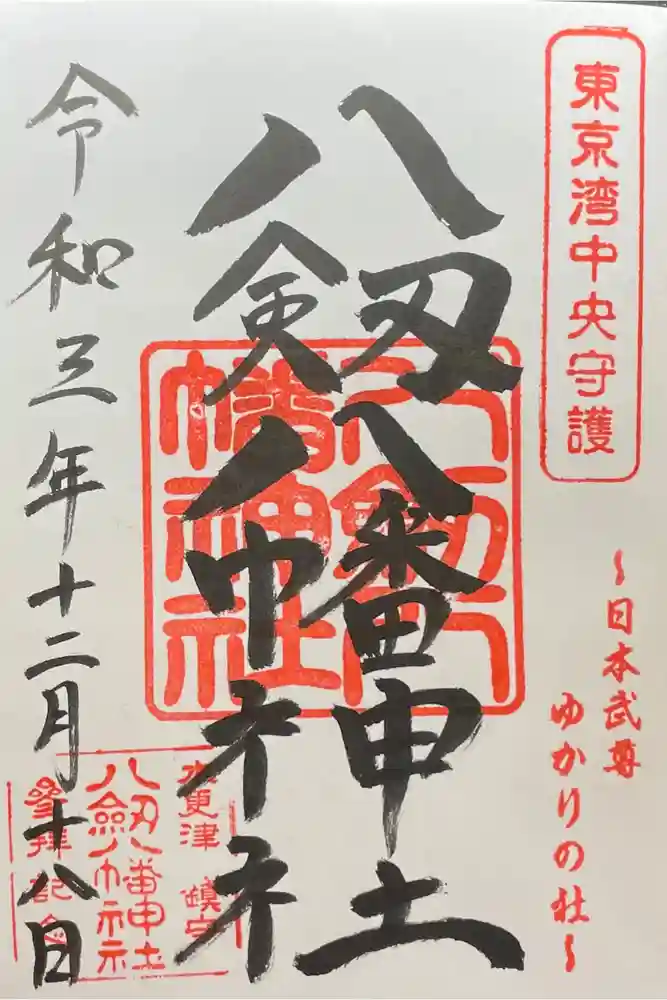 東京湾中央守護
~日本武尊
ゆかりの社~
八劔八幡神社
八劔八幡神社
木更津 鎮守
八劔八幡神社
參拝記念
令和三年十二月十八日